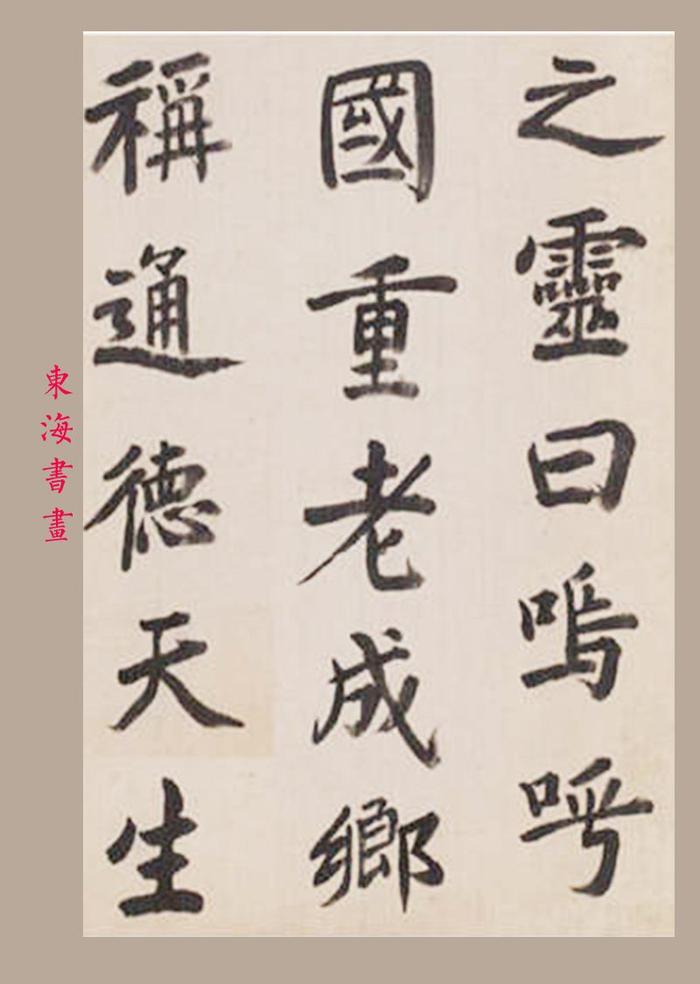 之靈曰嗚呼
國重老成鄉
稱通德天生
東海書畫